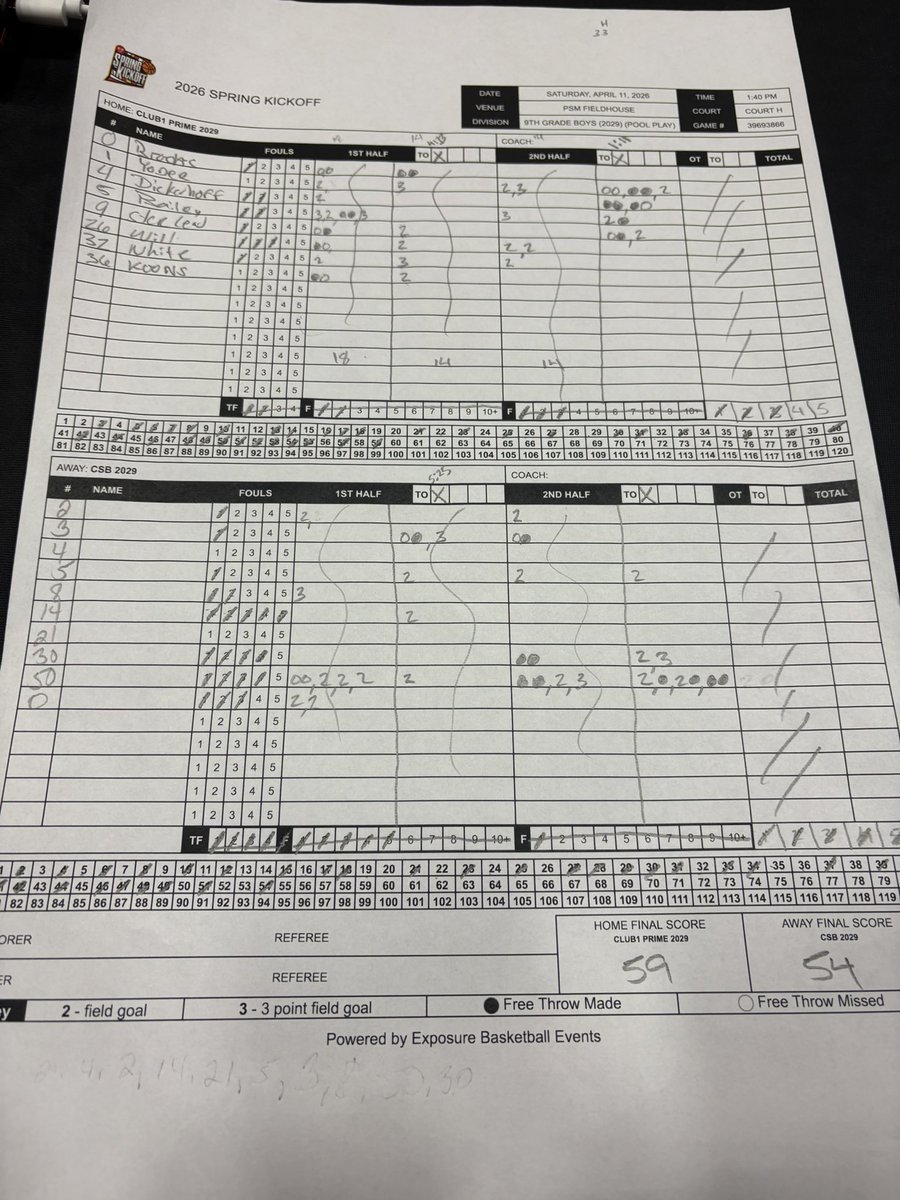 H
33
SPRING KICKOFF
2026 SPRING KICKOFF
DATE SATURDAY, APRIL 11, 2026 TIME 1:40 PM
VENUE PSM FIELDHOUSE COURT COURT H
DIVISION 9TH GRADE BOYS (2029) (POOL PLAY) GAME # 39693866
HOME: CLUB1 PRIME 2029 COACH:
# NAME FOULS 1ST HALF TO X 2ND HALF TO X OT TO TOTAL
0 1 2 3 4 5
1 Yoder 1 2 3 4 5 2 3 2,3 2
4 Dickhoff 1 2 3 4 5 2
5 Bailey 1 2 3 4 5 3,2 3 3 2
9 1 2 3 4 5 2 2
26 Will 1 2 3 4 5 2 2,2
32 White 1 2 3 4 5 2 3 2
36 KOONS 1 2 3 4 5 2
1 2 3 4 5
1 2 3 4 5
1 2 3 4 5
1 2 3 4 5
1 2 3 4 5 18 14 14
1 2 3 4 5
1 2 3 4 5
TF 1 2 3 4 F 1 2 3 4 5 6 7 8 9 10+ F 1 2 3 4 5 6 7 8 9 10+ 1 2 3 4 5
1 2 3 4 5 6 7 8 9 10 11 12 13 14 15 16 17 18 19 20 21 22 23 24 25 26 27 28 29 30 31 32 33 34 35 36 37 38 39 40
41 42 43 44 45 46 47 48 49 50 51 52 53 54 55 56 57 58 59 60 61 62 63 64 65 66 67 68 69 70 71 72 73 74 75 76 77 78 79 80
81 82 83 84 85 86 87 88 89 90 91 92 93 94 95 96 97 98 99 100 101 102 103 104 105 106 107 108 109 110 111 112 113 114 115 116 117 118 119 120
AWAY: CSB 2029 5:25 COACH:
# NAME FOULS 1ST HALF TO X 2ND HALF TO X OT TO TOTAL
2 1 2 3 4 5 2, 2
3 1 2 3 4 5 3
4 1 2 3 4 5
5 1 2 3 4 5 2 2 2
8 1 2 3 4 5 3
14 1 2 3 4 5 2
21 1 2 3 4 5
30 1 2 3 4 5 2 3
50 1 2 3 4 5 2, 2, 2 2 2,3 2
0 1 2 3 4 5 2,2
1 2 3 4 5
1 2 3 4 5
1 2 3 4 5
1 2 3 4 5
1 2 3 4 5
TF F 6 7 8 9 10+ F 1 2 3 4 5 6 7 8 9 10+
1 2 3 4 5 6 7 8 9 10 11 12 13 14 15 16 17 18 19 20 21 22 23 24 25 26 27 28 29 30 31 32 33 34 35 36 37 38 39
42 43 44 45 46 47 48 49 50 51 52 53 54 55 56 57 58 59 60 61 62 63 64 65 66 67 68 69 70 71 72 73 74 75 76 77 78 79
82 83 84 85 86 87 88 89 90 91 92 93 94 95 96 97 98 99 100 101 102 103 104 105 106 107 108 109 110 111 112 113 114 115 116 117 118 119
ORER REFEREE HOME FINAL SCORE AWAY FINAL SCORE
CLUB1 PRIME 2029 CSB 2029
ER REFEREE 59 54
y 2 - field goal 3 - 3 point field goal Free Throw Made Free Throw Missed
Powered by Exposure Basketball Events
4, 2, 14, 21, 5, 3, 30